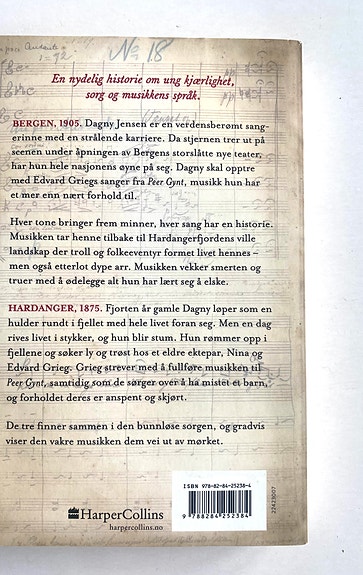 Andante
No 18
En nydelig historie om ung kjærlighet,
sorg og musikkens språk.
BERGEN, 1905. Dagny Jensen er en verdensberømt sang-
erinne med en strålende karriere. Da stjernen trer ut på
scenen under åpningen av Bergens storslåtte nye teater,
har hun hele nasjonens øyne på seg. Dagny skal opptre
med Edvard Griegs sanger fra Peer Gynt, musikk hun har
et mer enn nært forhold til.
Hver tone bringer frem minner, hver sang har en historie.
Musikken tar henne tilbake til Hardangerfjordens ville
landskap der troll og folkeeventyr formet livet hennes –
men også etterlot dype arr. Musikken vekker smerten og
truer med å ødelegge alt hun har lært seg å elske.
HARDANGER, 1875. Fjorten år gamle Dagny løper som en
hulder rundt i fjellet med hele livet foran seg. Men en dag
rives livet i stykker, og hun blir stum. Hun rømmer opp i
fjellene og søker ly og trøst hos et eldre ektepar, Nina og
Edvard Grieg. Grieg strever med å fullføre musikken til
Peer Gynt, samtidig som de sørger over å ha mistet et barn,
og forholdet deres er anspent og skjørt.
De tre finner sammen i den bunnløse sorgen, og gradvis
viser den vakre musikken dem vei ut av mørket.
ISBN 978-82-84-25238-4
9 788284 252384
22423007
HarperCollins
harpercollins.no